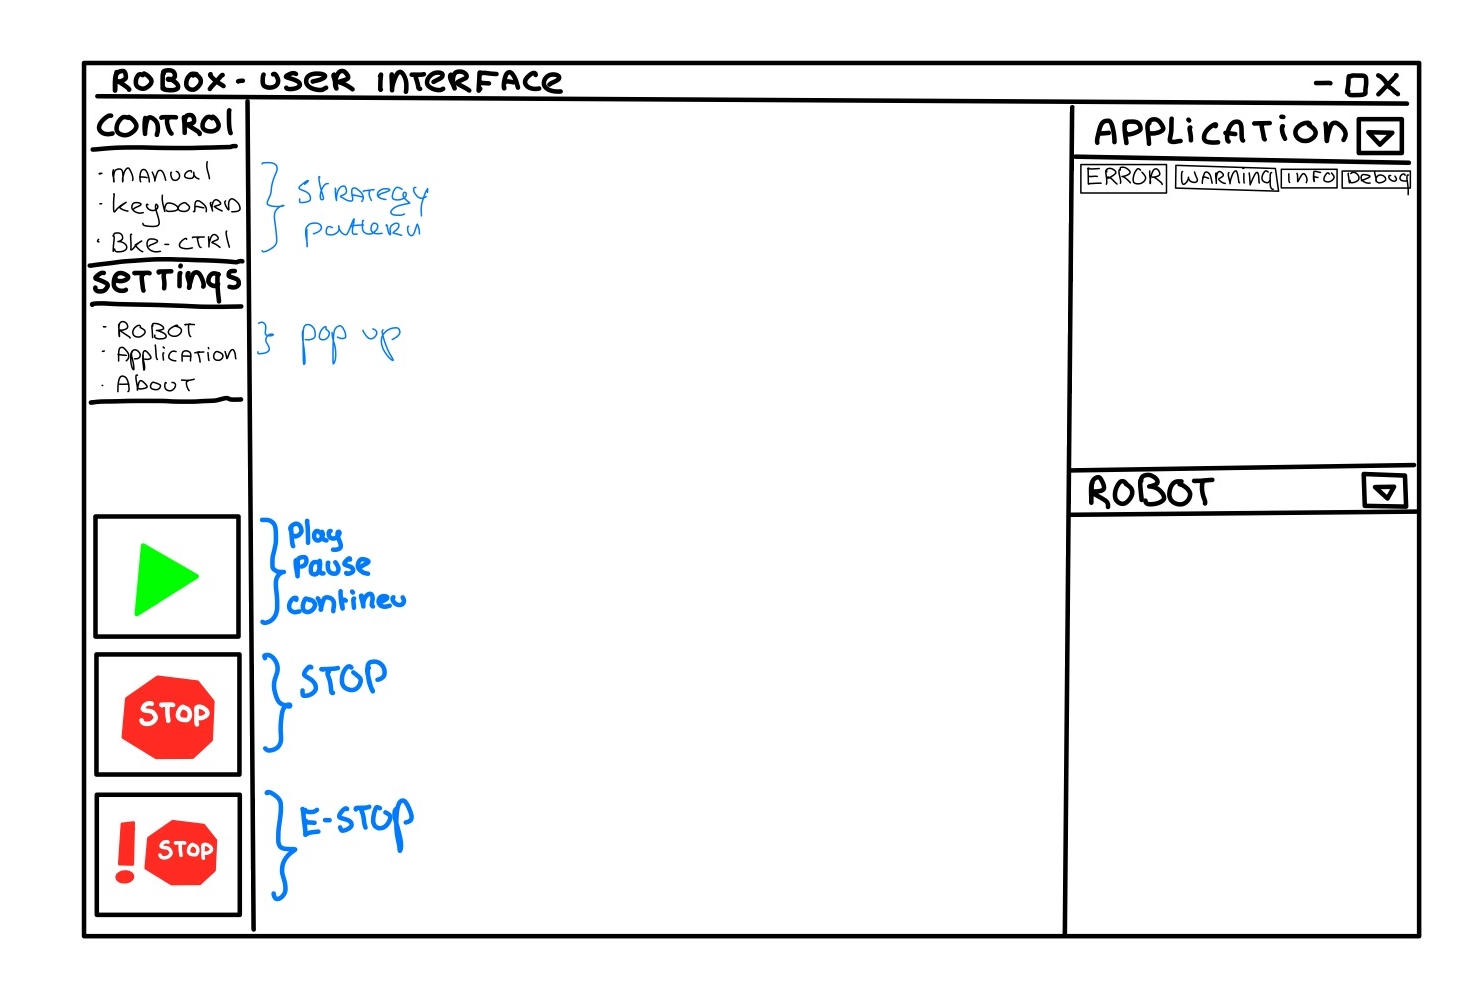 ROBOX - USER INTERFACE
CONTROL
· MANUAL
· KEYBOARD
· BKE-CTRL
SETTINGS
· ROBOT
· APPLICATION
· ABOUT
STRATEGY
PATTERN
POP UP
Play
Pause
contineu
STOP
STOP
E-STOP
! STOP
APPLICATION
ERROR WARNING INFO DEBUG
ROBOT